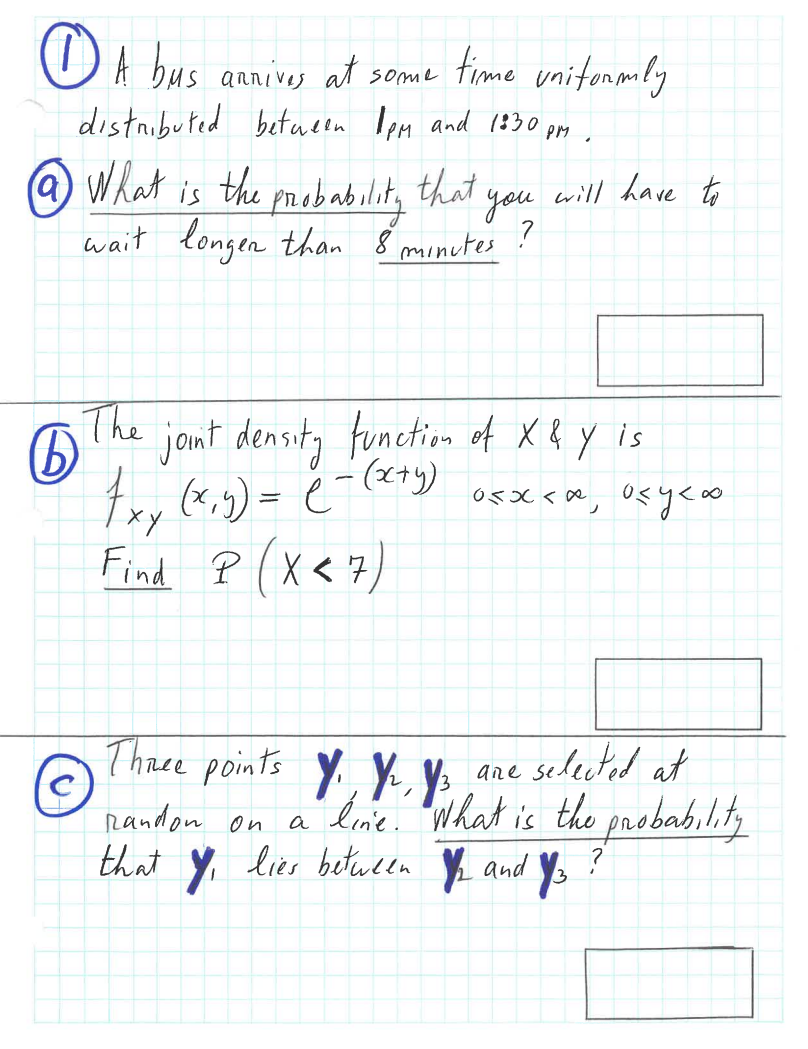 1 A bus arrives at some time uniformly
distributed between 1PM and 1:30 PM.
a What is the probability that you will have to
wait longer than 8 minutes ?
b The joint density function of X & Y is
f_XY (x,y) = e^-(x+y) 0≤x<∞, 0≤y<∞
Find P (X < 7)
c Three points Y1, Y2, Y3 are selected at
randon on a line. What is the probability
that Y1 lies between Y2 and Y3 ?